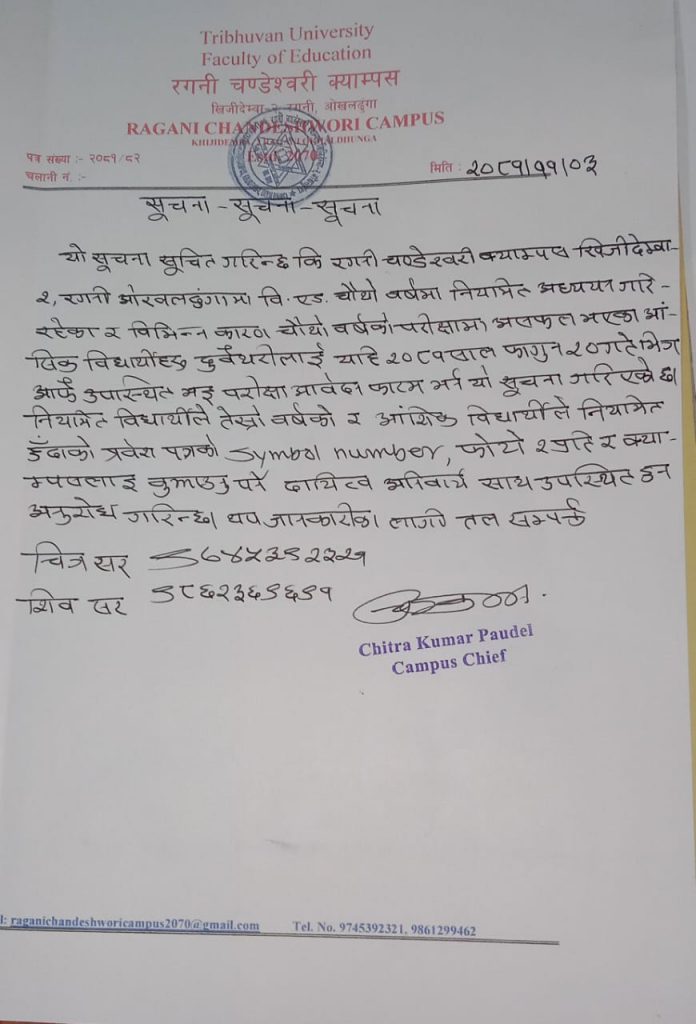 Tribhuvan University
Faculty of Education
रगनी चण्डेश्वरी क्याम्पस
खिजीदेम्बा-२, रगनी, ओखलढुंगा
RAGANI CHANDESHWORI CAMPUS
KHIJIDEMBA
Estd. 2070
पत्र संख्या :- २०८१/८२
चलानी नं. :-
मिति : २०८१/११/०३
सूचना - सूचना - सूचना
यो सूचना सूचित गरिन्छ कि रगनी चण्डेश्वरी क्याम्पस खिजीदेम्बा-
२, रगनी ओखलढुंगामा वि. एड. चौथो वर्षमा नियमित अध्ययन गरि-
रहेका र विभिन्न कारण चौथो वर्षको परीक्षामा असफल भएका आं-
सिक विद्यार्थीहरु दुवैथरीलाई यहि २०८१ साल फागुन २० गते भित्र
आफै उपस्थित भई परीक्षा आवेदन फारम भर्न यो सूचना गरिएको छ।
नियमित विद्यार्थीले तेस्रो वर्षको र आंशिक विद्यार्थीले नियमित
हुँदाको प्रवेश पत्रको symbol number, फोटो २ प्रति र क्या-
म्पसलाई बुझाउनु पर्ने दायित्व अनिवार्य साथ उपस्थित हुन
अनुरोध गरिन्छ। थप जानकारीका लागी तल सम्पर्क
चित्र सर ९७४५३९२३२१
शिव सर ९८६२३६९६९१
Chitra Kumar Paudel
Campus Chief
l: raganichandeshworicampus2070@gmail.com Tel. No. 9745392321, 9861299462